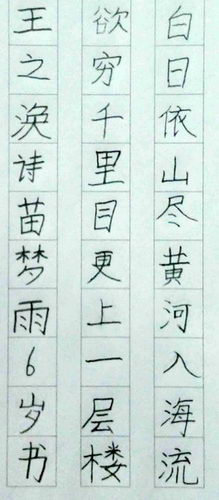 白日依山尽黄河入海流
欲穷千里目更上一层楼
王之涣诗苗梦雨6岁书